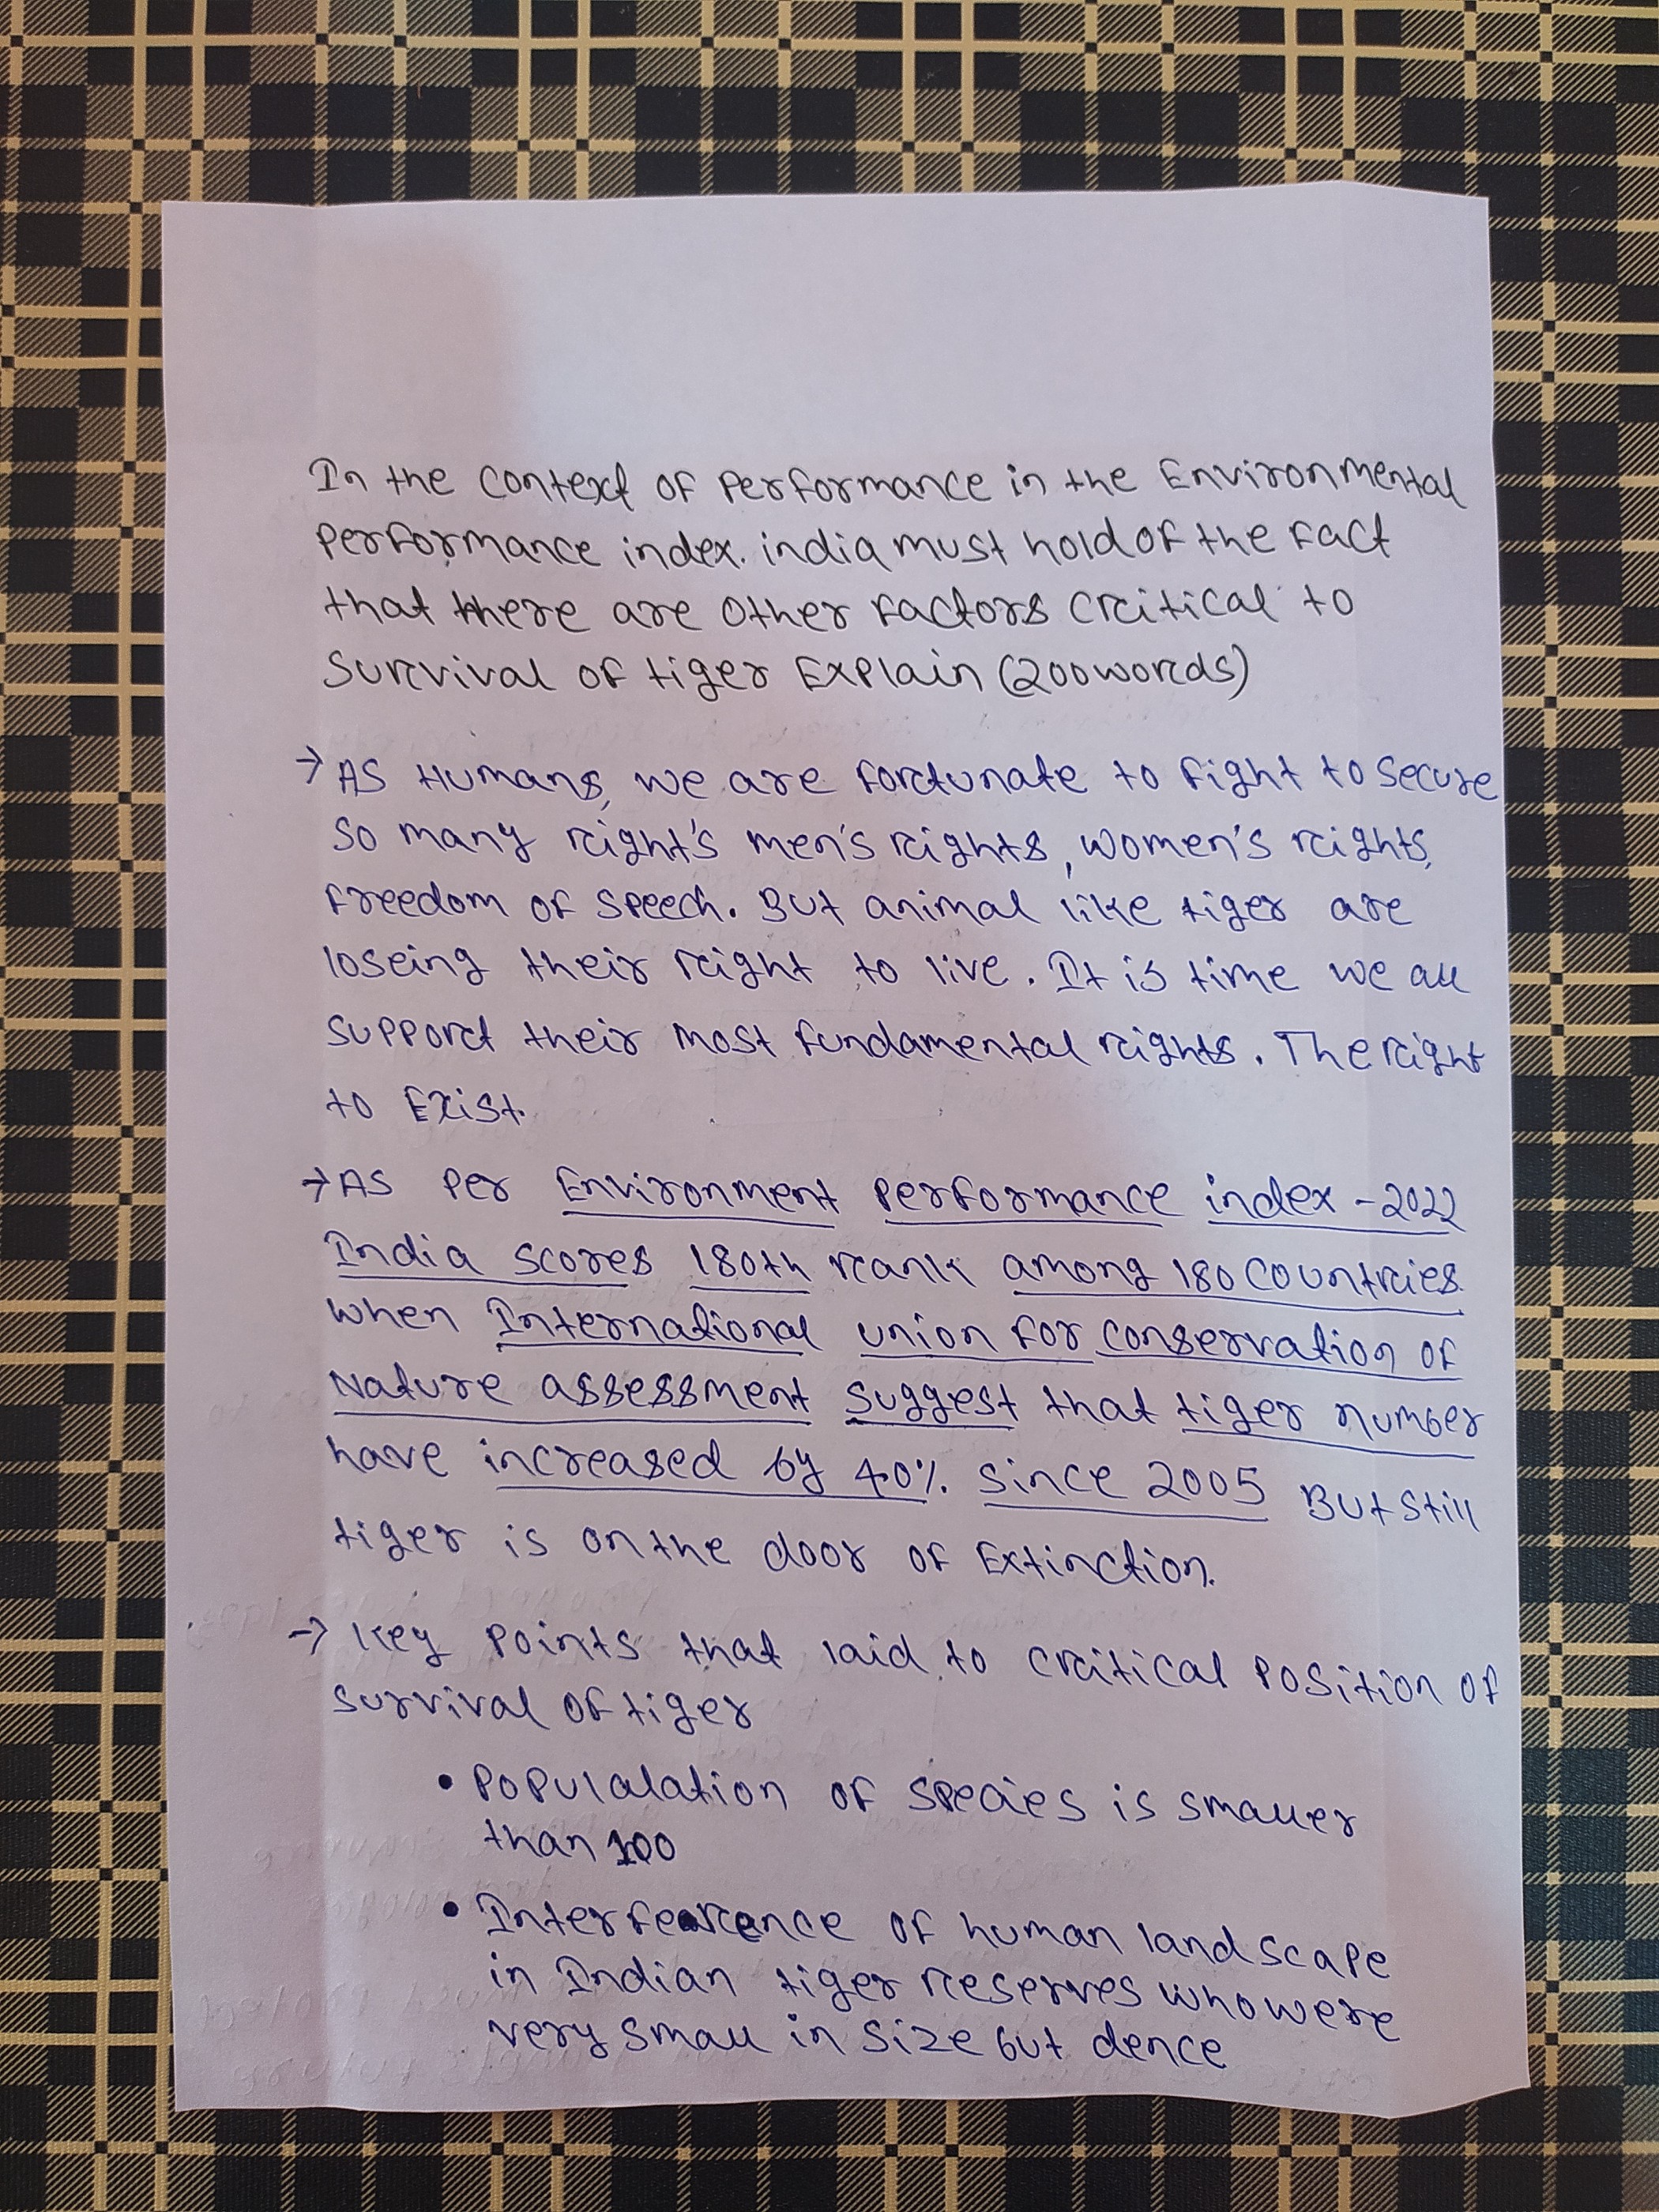 In the context of Performance in the Environmental
Performance index. india must hold of the fact
that there are other factors critical to
Survival of tiger Explain (200 words)
→ As Humans, we are fortunate to fight to secure
so many right's men's rights, women's rights,
freedom of speech. But animal like tiger are
loseing their right to live. It is time we all
support their most fundamental rights. The right
to Exist.
→ As Per Environment Performance index - 2022
India scores 180th rank among 180 countries.
when International union for conservation of
Nature assessment suggest that tiger number
have increased by 40% since 2005 But still
tiger is on the door of Extinction.
→ Key Points that laid to critical Position of
survival of tiger
• Populalation of species is smaller
than 100
• Interfearcence of human landscape
in Indian tiger reserves who were
very small in size but dence